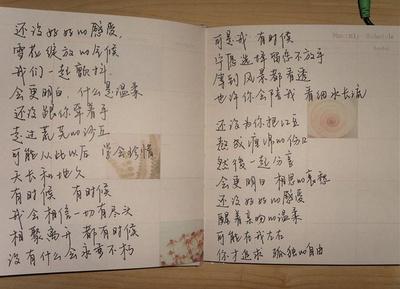 还没好好的感受
雪花绽放的气候
我们一起颤抖
会更明白 什么是温柔
还没跟你牵着手
走过荒芜的沙丘
可能从此以后 学会珍惜
天长和地久
有时候 有时候
我会相信一切有尽头
相聚离开 都有时候
没有什么会永垂不朽
Monthly Schedule
可是我 有时候
宁愿选择留恋不放手
等到风景都看透
也许你会陪我 看细水长流
还没为你把红豆
熬成缠绵的伤口
然後一起分享
会更明白 相思的哀愁
还没好好的感受
醒着亲吻的温柔
可能在我左右
你才追求 孤独的自由